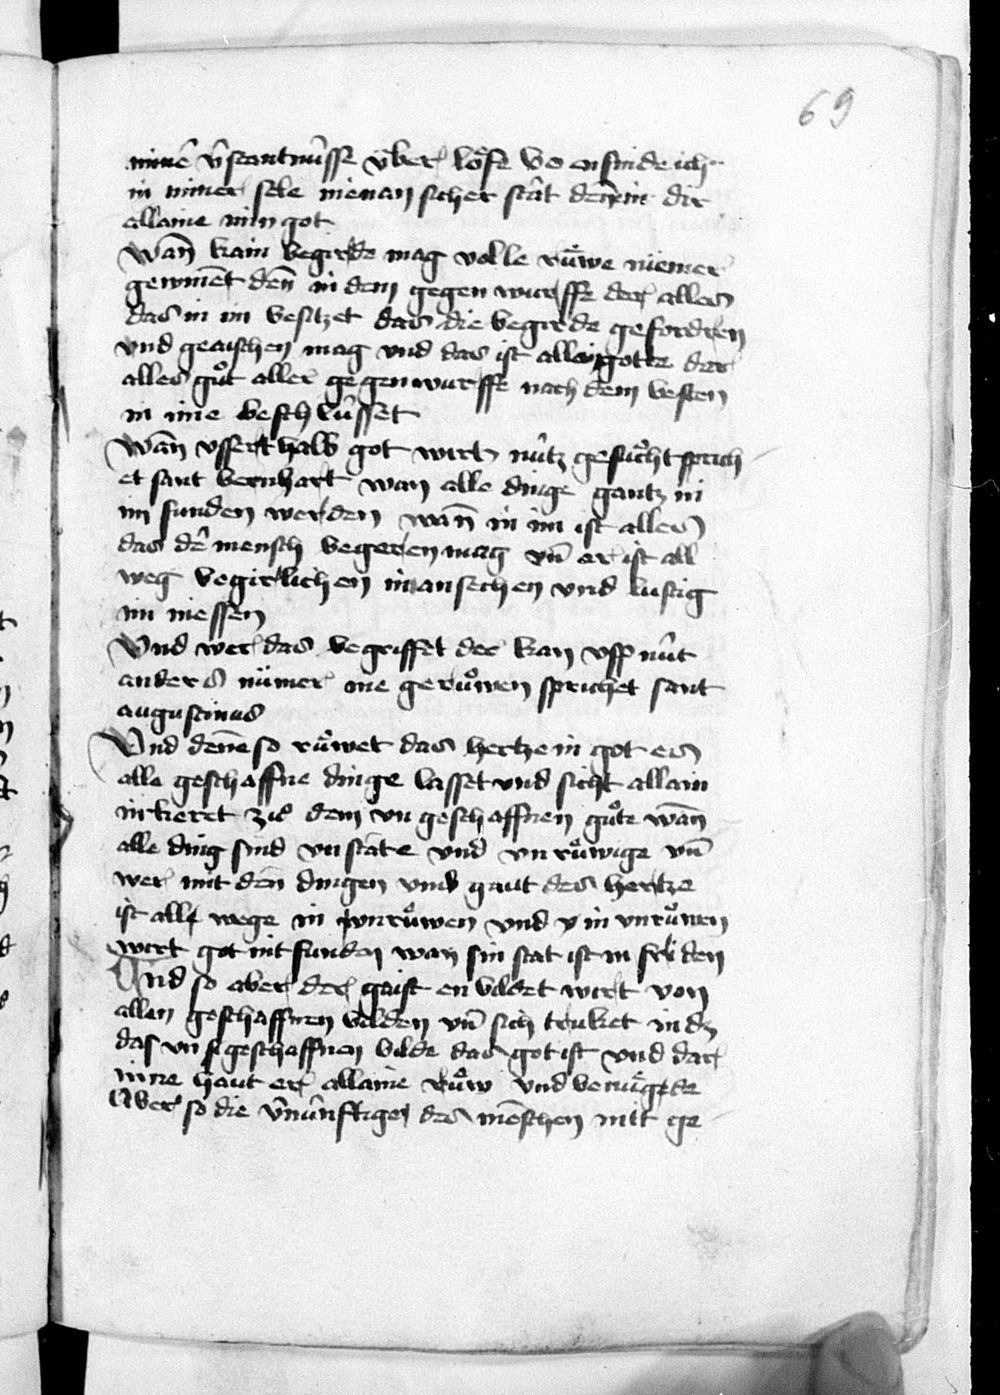 69
minē v̂stantnûsse v̈ber löfe vo enfinde ich
in miner sele nienan sicher stât denē in dir
allaine min got
Wan̄ kain begirde mag volle rův̈we niemer
gewinēt den̄ in dem gegen wurffe der alles
das in im besitzet das die begirde gefordren
vnd geaischen mag vnd das ist allain gotte der
alles gůt aller gegenwurffe nach dem besten
in ime beschlûsset
Wan̄ vsserthalb got wirt nûtz gesůcht sprich
et sant bernhart wan alle dinge gantz in
im funden werden wan̄ in im ist alles
das dē mensch begeren mag vn̄ er ist all
weg begirlichen in ansechen vnd lustig
im niessen
Vnd wer das begriffet der kan vff nût
anders nümer me gerůwen sprichet sant
augustinus
Vnd dene so růwet das hertze in got es
alle geschaffne dinge lasset vnd sicht allain
inkeret zů dem vngeschaffnen gůte wan̄
alle ding sind vnstâte vnd vnrůwige vn̄
wer mit den̄ dingen vmb gaut des hertze
ist alle wege in vnrůwen vnd in vnrůwen
wirt got nit funden wan sin stat ist in friden
Vnd so aber der gaist enbildet wirt von
allen geschaffnen bilden vn̄ sich truket in dz
das vngeschaffnen bilde das got ist vnd dar
inne haut er allaine růw vnd benügede
Aber so die v̂nûnftige des mēschen nitt ge